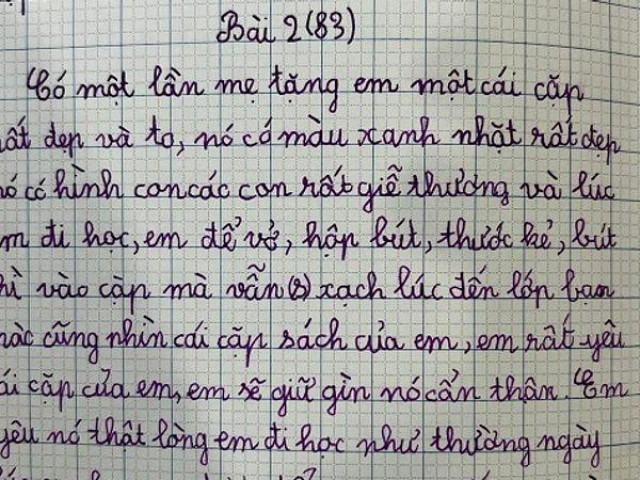 Bài 2 (83)
Có một lần mẹ tặng em một cái cặp
ất đẹp và to, nó có màu xanh nhặt rất đẹp
ó có hình con các con rất giễ thương và lúc
m đi học, em để vở, hộp bút, thước kẻ, bút
hì vào cặp mà vẫn (s) xạch lúc đến lớp bạn
nào cũng nhìn cái cặp sách của em, em rất yêu
ái cặp của em, em sẽ giữ gìn nó cẩn thận. Em
yêu nó thật lòng em đi học như thường ngày